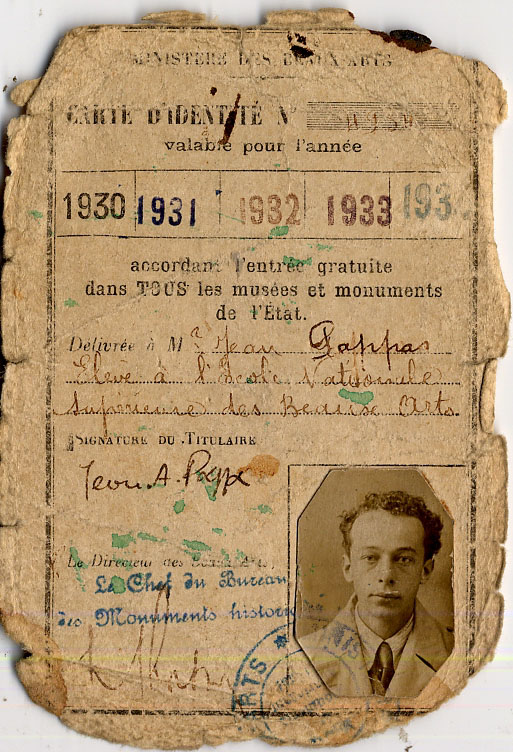 MINISTÈRE DES BEAUX-ARTS
CARTE D'IDENTITÉ N°
valable pour l'année
1930 1931 1932 1933 193
accordant l'entrée gratuite
dans TOUS les musées et monuments
de l'État.
Délivrée à Mr Jean Pappas
Elève à l'Ecole Nationale
Supérieure des Beaux Arts.
SIGNATURE DU TITULAIRE
Jean A. Papp
Le Directeur des Beaux-Arts,
Le Chef du Bureau
des Monuments histor
ARTS